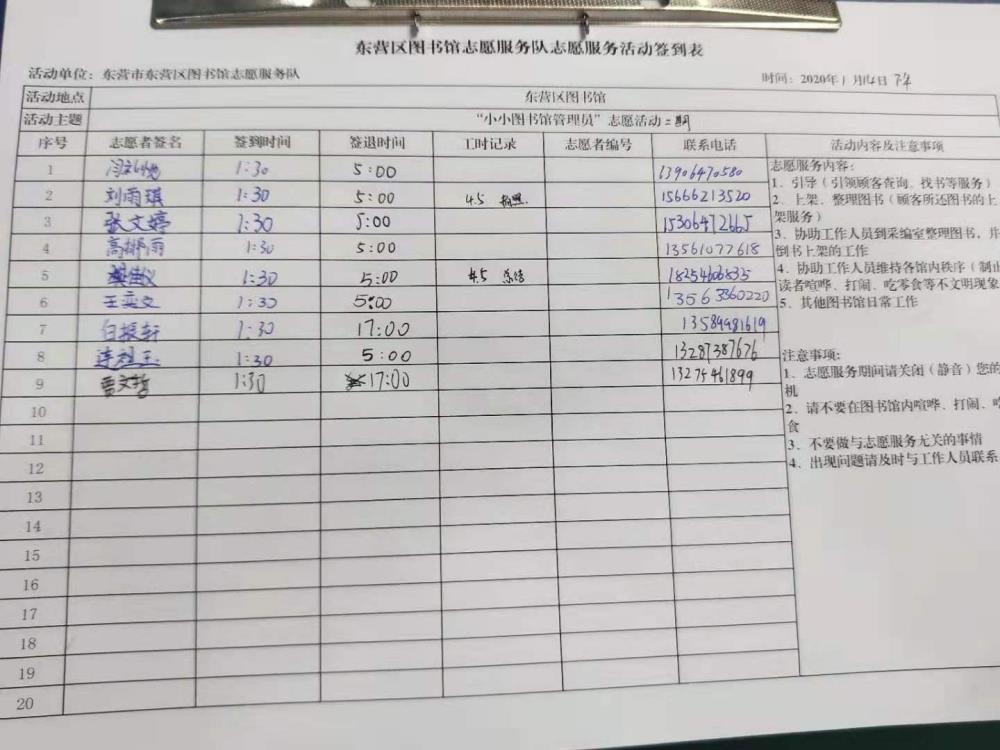 东营区图书馆志愿服务队志愿服务活动签到表
活动单位：东营市东营区图书馆志愿服务队 时间：2020年1月14日
活动地点 东营区图书馆
活动主题 “小小图书馆管理员”志愿活动二期
序号 志愿者签名 签到时间 签退时间 工时记录 志愿者编号 联系电话 活动内容及注意事项
1 1:30 5:00 13906470580
2 刘雨琪 1:30 5:00 4.5 拍照 15666213520
3 张文婷 1:30 5:00 15306472665
4 1:30 5:00 13561077618
5 1:30 5:00 4.5 总结 18254606835
6 王奕文 1:30 5:00 13563860220
7 白振轩 1:30 17:00 13589981619
8 1:30 5:00 13287387676
9 曹文哲 1:30 17:00 13275461899
10
11
12
13
14
15
16
17
18
19
20
志愿服务内容：
1、引导（引领顾客查询、找书等服务）
2、上架、整理图书（顾客所还图书的上
架服务）
3、协助工作人员到采编室整理图书，并
倒书上架的工作
4、协助工作人员维持各馆内秩序（制止
读者喧哗、打闹、吃零食等不文明现象
5、其他图书馆日常工作
注意事项：
1、志愿服务期间请关闭（静音）您的
机
2、请不要在图书馆内喧哗、打闹、吃
食
3、不要做与志愿服务无关的事情
4、出现问题请及时与工作人员联系